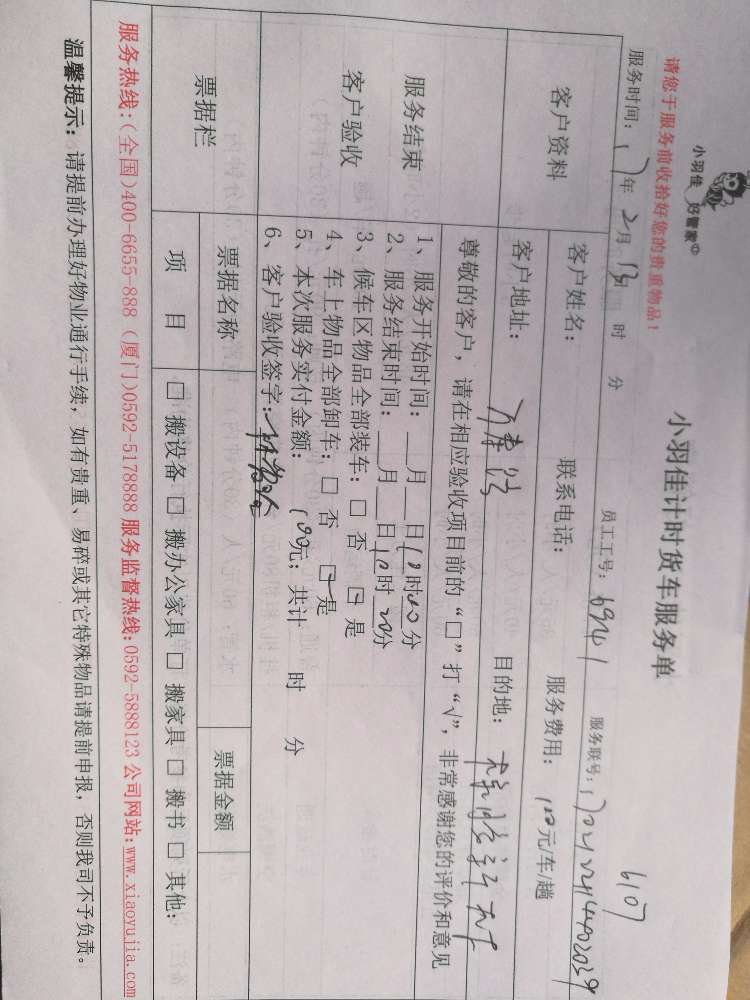 小羽佳 好管家
小羽佳计时货车服务单
6107
请您于服务前收拾好您的贵重物品！
服务时间：17年2月13日 时 分 员工工号：6941 服务联号：
客户资料
客户姓名： 联系电话： 服务费用：100元/车/趟
客户地址： 目的地：
服务结束
客户验收
尊敬的客户，请在相应验收项目前的“□”打“√”，非常感谢您的评价和意见
1、服务开始时间：___月___日10时00分
2、服务结束时间：___月___日10时20分
3、候车区物品全部装车：□ 否 □ 是
4、车上物品全部卸车：□ 否 □ 是
5、本次服务实付金额：100元；共计 时 分
6、客户验收签字：
票据栏
票据名称 票据金额
项 目 □ 搬设备 □ 搬办公家具 □ 搬家具 □ 搬书 □ 其他：
服务热线：(全国)400-6655-888 (厦门)0592-5178888 服务监督热线：0592-5888123 公司网站：www.xiaoyujia.com
温馨提示：请提前办理好物业通行手续，如有贵重、易碎或其它特殊物品请提前申报，否则我司不予负责。